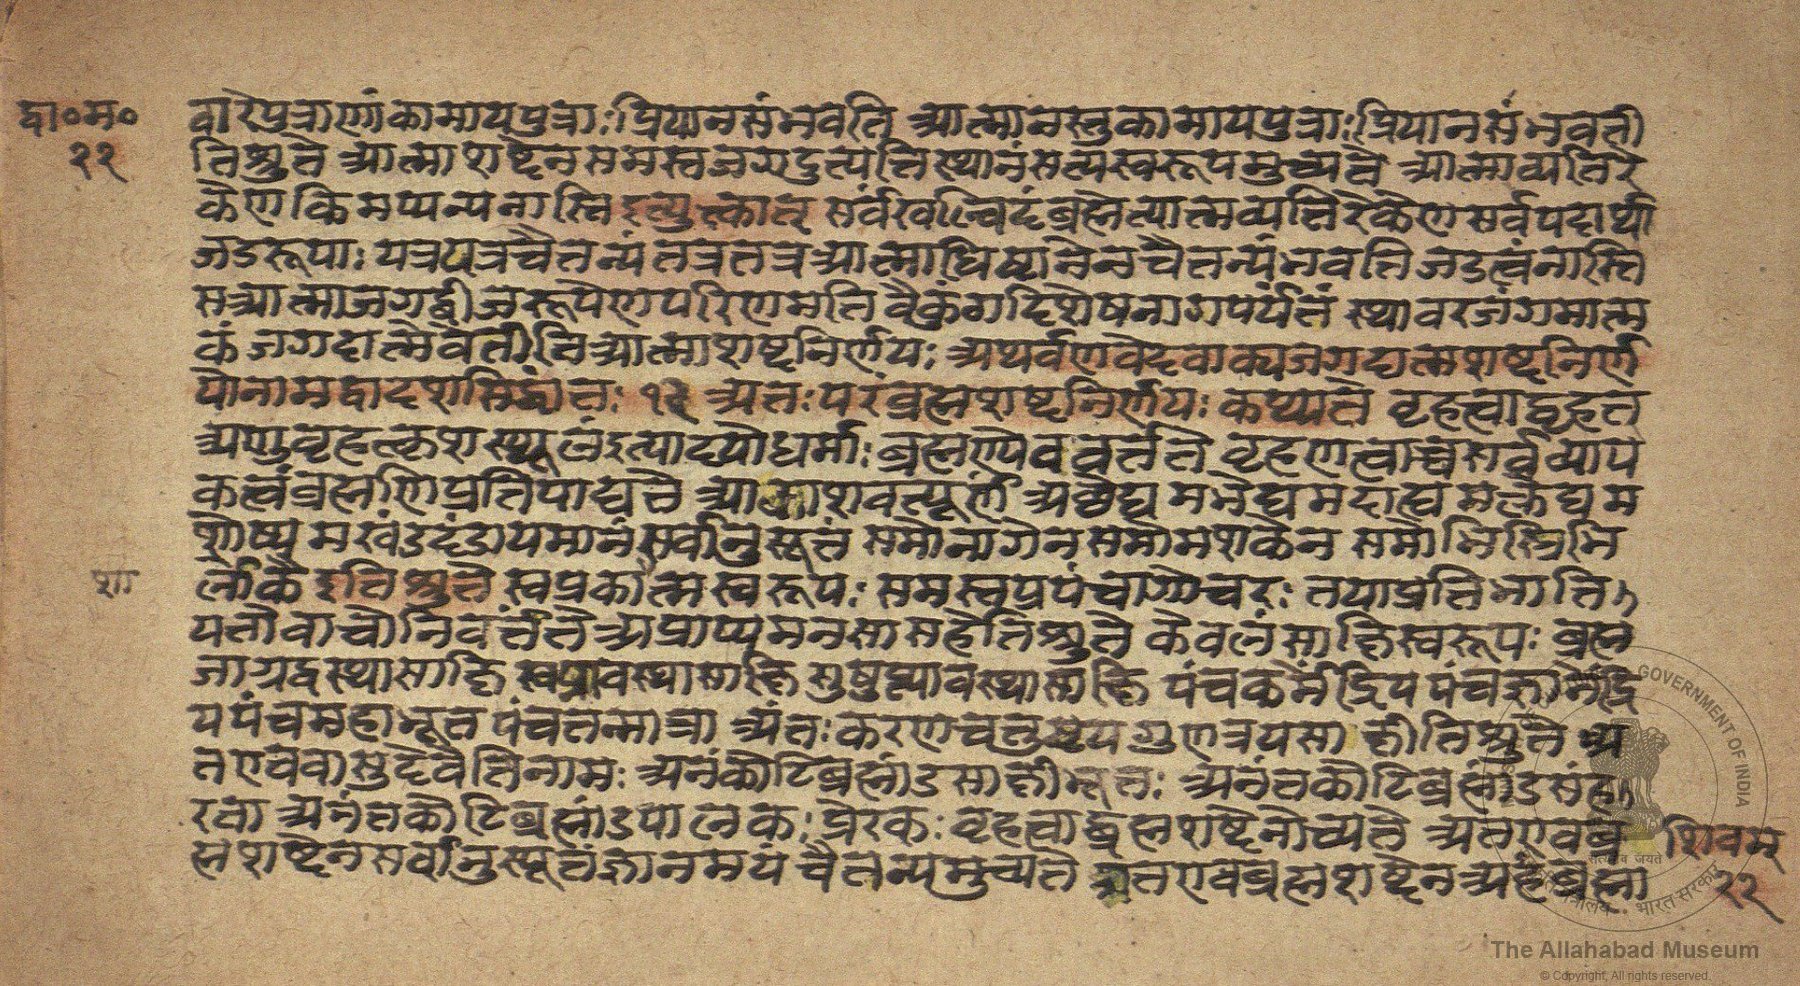 द्वा०म०
२२
वारेपुत्राणांकामायपुत्राःप्रियानसंभवति आत्मानस्तुकामायपुत्राःप्रियानसंभवती
तिश्रुते आत्माशब्देनसमस्तजगदुत्पत्तिस्थानंसत्यस्वरूपमुच्यते आत्माव्यतिरे
केणकिमप्यन्यनास्ति इत्युक्तात् सर्वंखल्विदंब्रह्मेत्यात्मव्यतिरेकेणसर्वपदार्था
जडरूपाः यत्रयत्रचैतन्यंतत्रतत्रआत्माधिष्टानेनचैतन्यंभवति जडत्वंनास्ति
सआत्माजगद्बीजरूपेणपरिणमति वैकुंठादिशेषनागपर्यंत्तं स्थावरजंगमात्म
कं जगदात्मेवेतीतिआत्माशब्दनिर्णयः अथर्वणवेदवाक्यजगदात्मशब्दनिर्ण
योनामद्वादशसिद्धांत्तः १२ अतःपरंब्रह्मशब्दनिर्णयः कथ्यते वृहत्वाद्वृहत
अणुवृहत्कृशस्थूलंइत्यादयोधर्माः ब्रह्मण्येववर्तते वृहणत्वाच्चसर्वव्याप
कत्वंब्रह्मणिप्रतिपाद्यते आकाशवत्पूर्णं अछेद्यमभेद्यमदाह्यमक्लेद्यम
शोष्यमखंडदंडायमानंसर्वानुस्यूतं समोनागेनसमोमशकेन समोभिस्त्रिभि
शा
र्लोकै इतिश्रुते स्वप्रकात्मस्वरूपः समस्तप्रपंचागोचरः तयाप्रतिभाति
यतोवाचोनिवर्त्तंतेअप्राप्यमनसासहेतिश्रुते केवलंसाक्षिस्वरूपः ब्रह्म
जाग्रदवस्थासाक्षि स्वप्नावस्थासाक्षि सुषुप्त्यावस्थासाक्षि पंचकर्मेंद्रियपंचज्ञानेंद्रि
यपंचमहाभूतपंचतन्मात्रा अंतःकरणचतुष्टयगुणत्रयसाक्षीतिश्रुते अ
तएववासुदेवेतिनामः अनंतकोटिब्रह्मांडसाक्षीभूतः अनंतकोटिब्रह्मांडसंह
रता अनंतकोटिब्रह्मांडपालकः प्रेरकः वृहत्वाद्ब्रह्मशब्देनोच्यते अतएवब्र
ह्मशब्देनसर्वानुस्यूतंज्ञानमयंचैतन्यमुच्यते अतएवब्रह्मशब्देनअहंब्रह्मा
शिवम्
२२
GOVERNMENT OF INDIA
सत्यमेव जयते
भारत सरकार
The Allahabad Museum
© Copyright, All rights reserved.